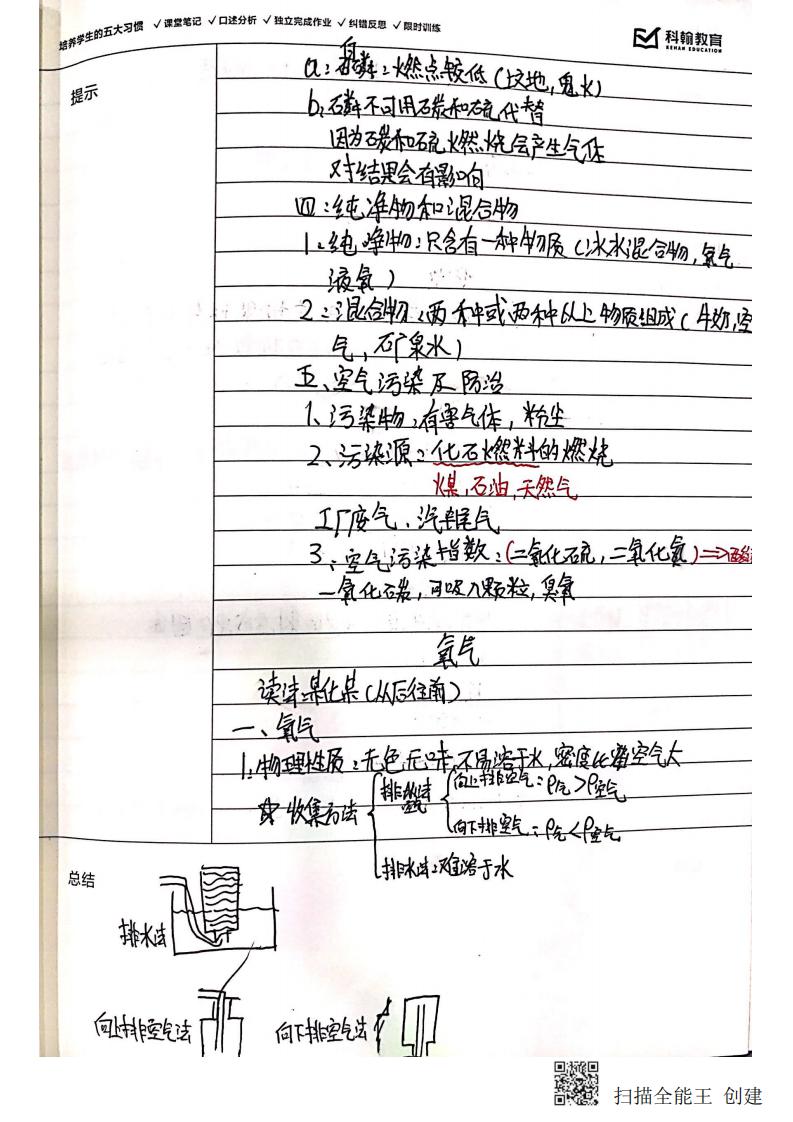 培养学生的五大习惯 ✓课堂笔记 ✓口述分析 ✓独立完成作业 ✓纠错反思 ✓限时训练
科翰教育
KEHAN EDUCATION
提示
a:白磷:燃点较低(坟地,鬼火)
b:石磷不可用石炭和硫代替
因为石炭和硫燃烧会产生气体
对结果会有影响
四:纯净物和混合物
1、纯净物:只含有一种物质(冰水混合物,氧气
液氧)
2:混合物:两种或两种以上物质组成(牛奶,空
气,矿泉水)
五、空气污染及防治
1、污染物:有害气体,粉尘
2、污染源:化石燃料的燃烧
煤,石油,天然气
工厂废气,汽车尾气
3:空气污染指数:(二氧化硫,二氧化氮)⇒酸
一氧化石炭,可吸入颗粒,臭氧
氧气
读法某化某(从后往前)
一、氧气
1.物理性质:无色无味,不易溶于水,密度比空气大
☆收集方法
排空气法
向上排空气:ρ气>ρ空气
向下排空气:ρ气<ρ空气
排水法:难溶于水
总结
排水法
向上排空气法
向下排空气法
扫描全能王 创建